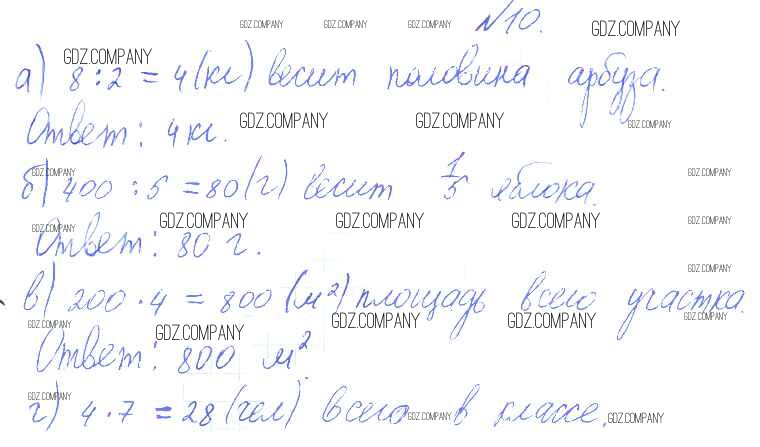 GDZ.COMPANY GDZ.COMPANY GDZ.COMPANY №10. GDZ.COMPANY
GDZ.COMPANY
а) 8 : 2 = 4 (кг) весит половина арбуза.
Ответ: 4 кг. GDZ.COMPANY GDZ.COMPANY GDZ.COMPANY
GDZ.COMPANY GDZ.COMPANY
б) 400 : 5 = 80 (г) весит 1/5 яблока.
GDZ.COMPANY GDZ.COMPANY GDZ.COMPANY GDZ.COMPANY GDZ.COMPANY
Ответ: 80 г.
GDZ.COMPANY
в) 200 · 4 = 800 (м²) площадь всего участка.
GDZ.COMPANY GDZ.COMPANY GDZ.COMPANY GDZ.COMPANY GDZ.COMPANY
Ответ: 800 м².
GDZ.COMPANY
г) 4 · 7 = 28 (чел) всего в классе.
GDZ.COMPANY GDZ.COMPANY